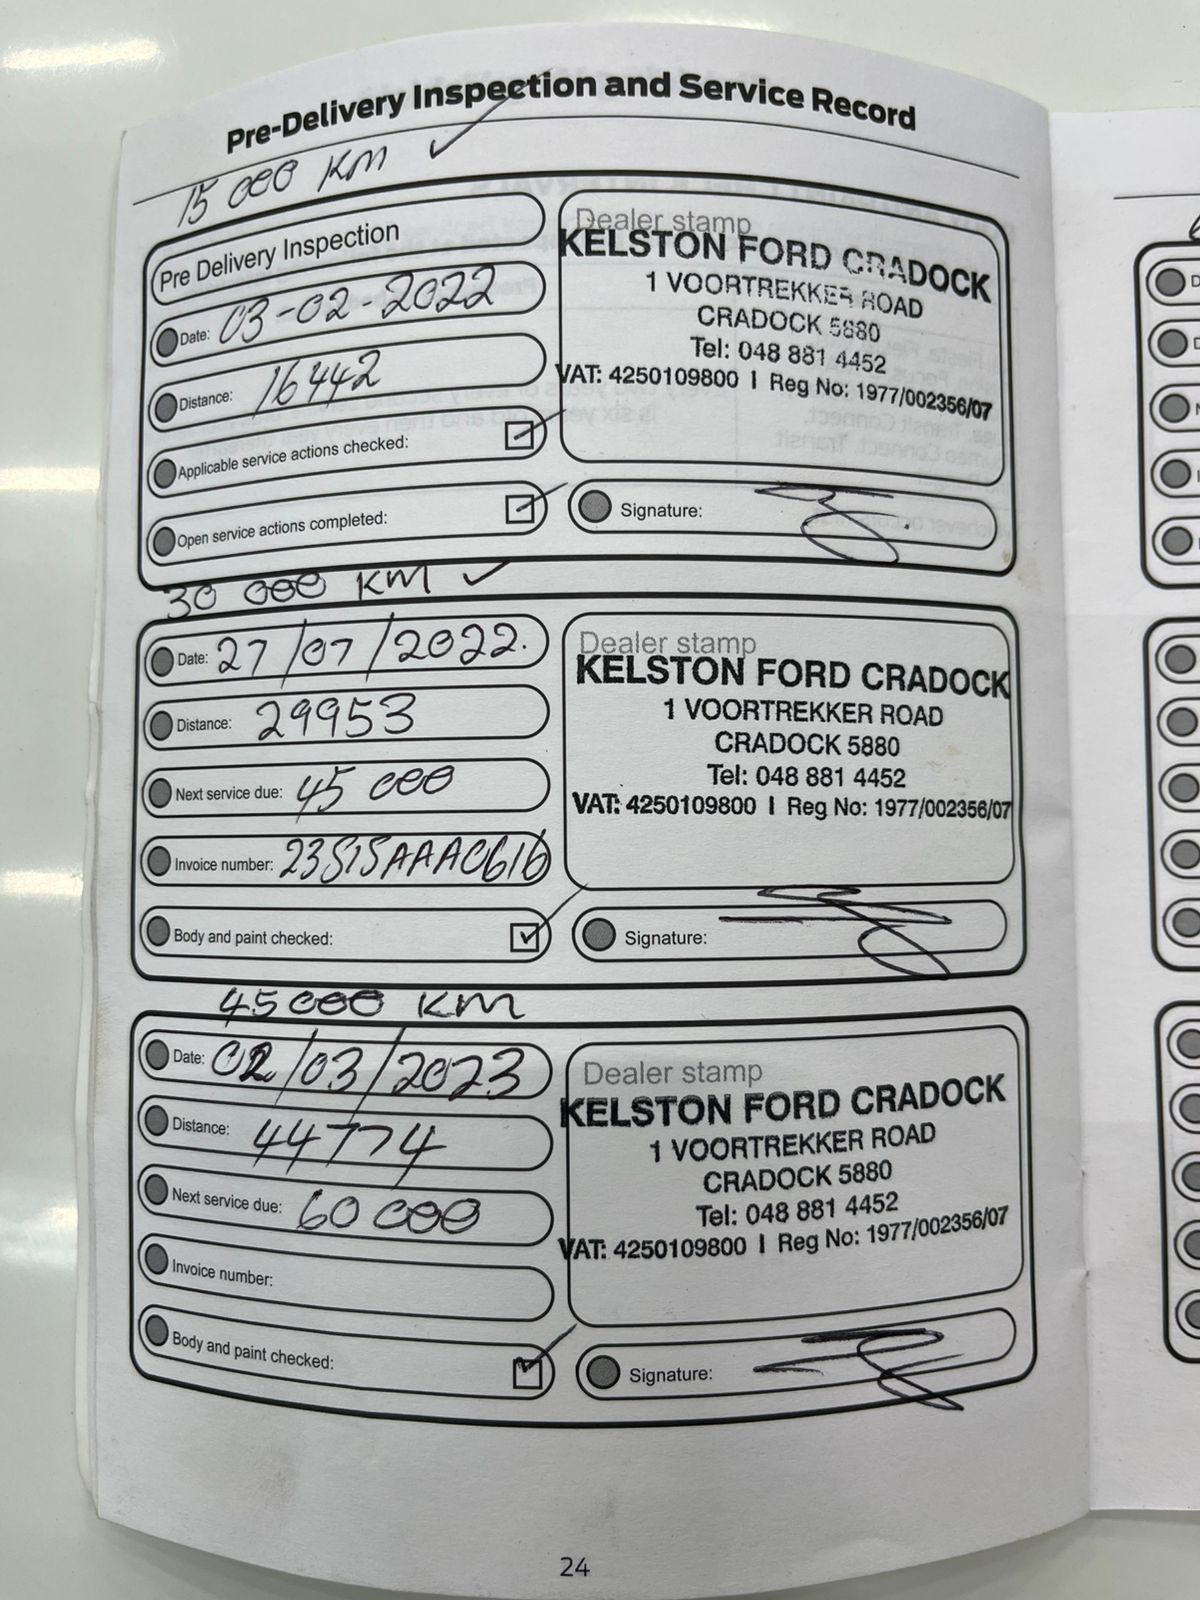 Pre-Delivery Inspection and Service Record
15 000 KM
Pre Delivery Inspection
Date: 03-02-2022
Distance: 16442
Applicable service actions checked:
Open service actions completed:
Dealer stamp
KELSTON FORD CRADOCK
1 VOORTREKKER ROAD
CRADOCK 5880
Tel: 048 881 4452
VAT: 4250109800 I Reg No: 1977/002356/07
Signature:
30 000 KM
Date: 27/07/2022.
Distance: 29953
Next service due: 45 000
Invoice number: 23S15AAA0616
Body and paint checked:
Dealer stamp
KELSTON FORD CRADOCK
1 VOORTREKKER ROAD
CRADOCK 5880
Tel: 048 881 4452
VAT: 4250109800 I Reg No: 1977/002356/07
Signature:
45000 KM
Date: 02/03/2023
Distance: 44774
Next service due: 60 000
Invoice number:
Body and paint checked:
Dealer stamp
KELSTON FORD CRADOCK
1 VOORTREKKER ROAD
CRADOCK 5880
Tel: 048 881 4452
VAT: 4250109800 I Reg No: 1977/002356/07
Signature:
24